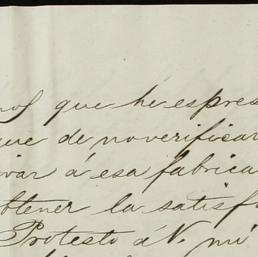 que he espres
que de no verificar
á esa fabrica
obtener la satisf
Protesto á V. mi